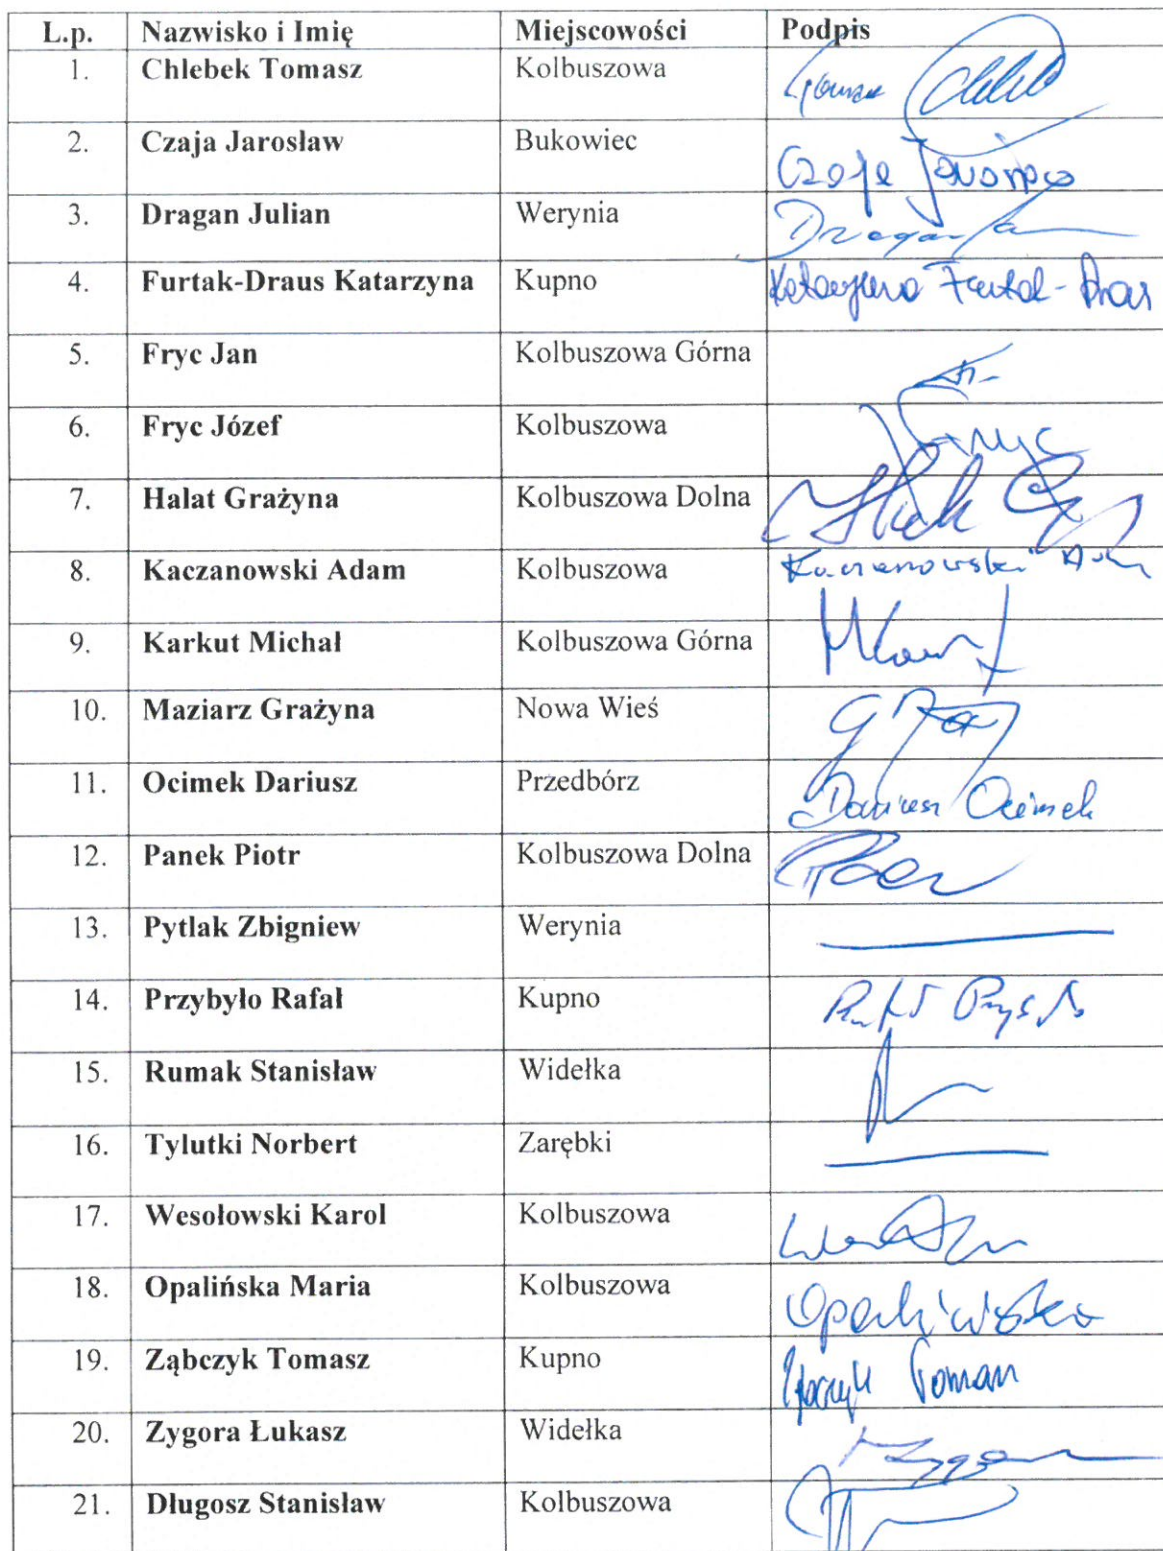 L.p. Nazwisko i Imię Miejscowości Podpis
1. Chlebek Tomasz Kolbuszowa Tomasz
2. Czaja Jarosław Bukowiec Czaja Jarosław
3. Dragan Julian Werynia Dragan
4. Furtak-Draus Katarzyna Kupno Katarzyna Furtak-Draus
5. Fryc Jan Kolbuszowa Górna
6. Fryc Józef Kolbuszowa Fryc
7. Halat Grażyna Kolbuszowa Dolna
8. Kaczanowski Adam Kolbuszowa Kaczanowski Adam
9. Karkut Michał Kolbuszowa Górna
10. Maziarz Grażyna Nowa Wieś
11. Ocimek Dariusz Przedbórz Dariusz Ocimek
12. Panek Piotr Kolbuszowa Dolna
13. Pytlak Zbigniew Werynia
14. Przybyło Rafał Kupno
15. Rumak Stanisław Widełka
16. Tylutki Norbert Zarębki
17. Wesołowski Karol Kolbuszowa
18. Opalińska Maria Kolbuszowa Opalińska
19. Ząbczyk Tomasz Kupno
20. Zygora Łukasz Widełka
21. Długosz Stanisław Kolbuszowa